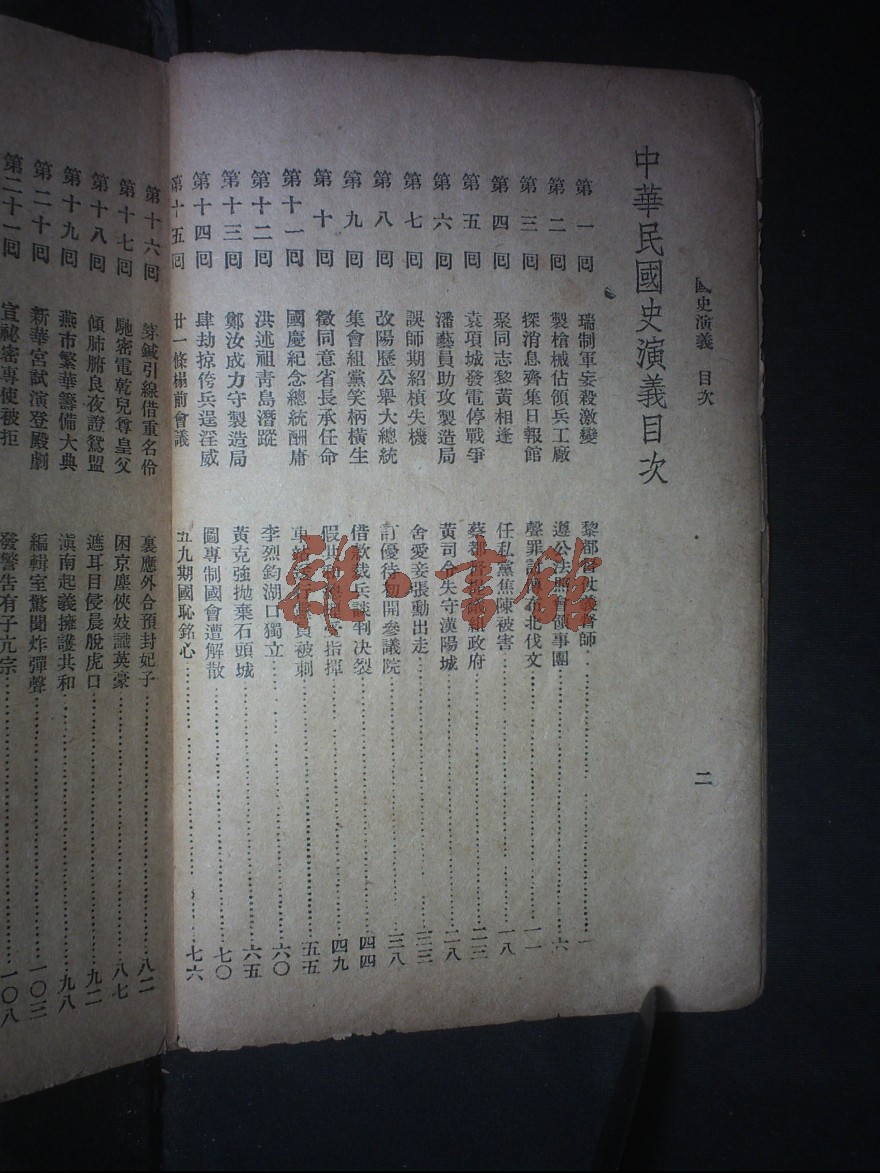 國史演義 目次
二
中華民國史演義目次
第一回 瑞制軍妄殺激變 黎都督仗義誓師 一
第二回 製槍械佔領兵工廠 遵公法照會領事團 六
第三回 探消息齊集日報館 聲罪討 北伐文 一一
第四回 聚同志黎黃相逢 任私黨焦陳被害 一八
第五回 袁項城發電停戰爭 蔡都督 組政府 二三
第六回 潘藝員助攻製造局 黃司令失守漢陽城 二八
第七回 誤師期紹楨失機 舍愛妾張勳出走 三三
第八回 改陽歷公舉大總統 訂優待初開參議院 三八
第九回 集會組黨笑柄橫生 借款裁兵談判决裂 四四
第十回 徵同意省長承任命 假共和 指揮 四九
第十一回 國慶紀念總統酬庸 車站 行 員被刺 五五
第十二回 洪述祖靑島潛蹤 李烈鈞湖口獨立 六〇
第十三回 鄭汝成力守製造局 黃克強拋棄石頭城 六五
第十四回 肆劫掠侉兵逞淫威 圖專制國會遭解散 七〇
第十五回 廿一條榻前會議 五九期國恥銘心 七六
第十六回 穿鍼引線借重名伶 裏應外合預封妃子 八二
第十七回 馳密電乾兒尊皇父 困京塵俠妓識英豪 八七
第十八回 傾肺腑良夜證鴛盟 遮耳目侵晨脫虎口 九二
第十九回 燕市繁華籌備大典 滇南起義擁護共和 九八
第二十回 新華宮試演登殿劇 編輯室驚聞炸彈聲 一〇三
第二十一回 宣祕密專使被拒 發警告有子亢宗 一〇八